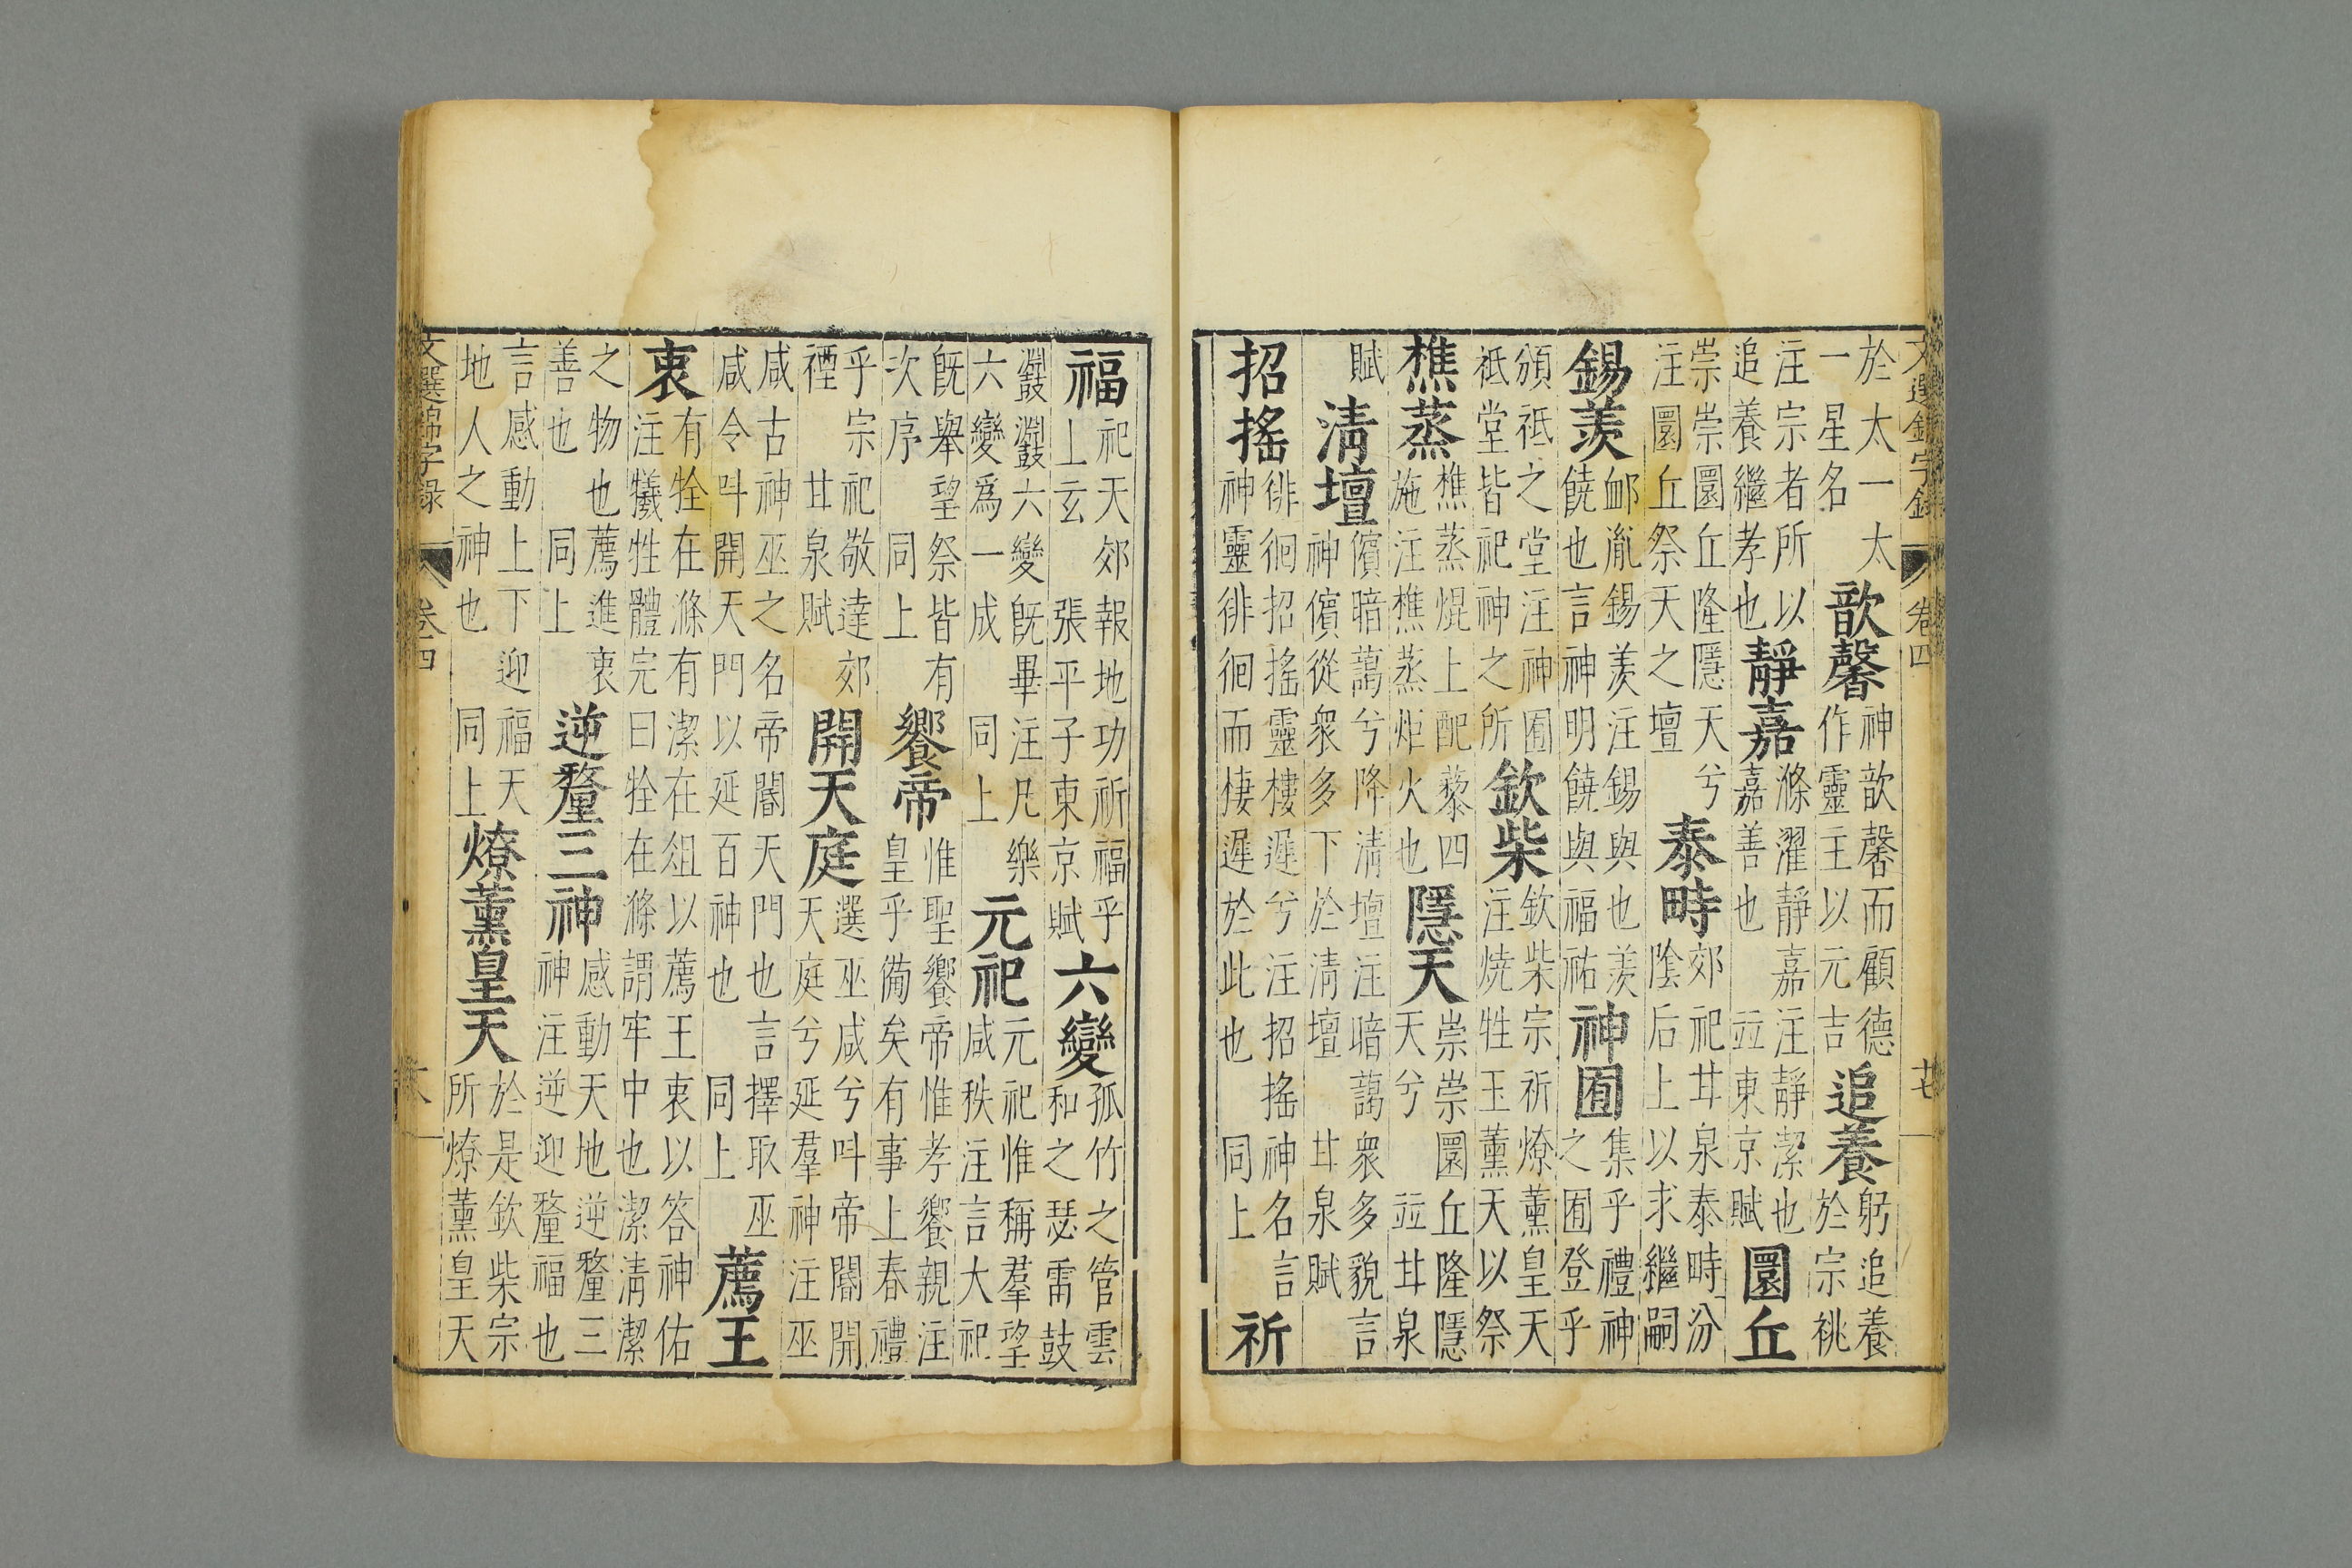 文選錦字錄 卷四 廿七
於太一太
一星名
歆馨
神歆馨而顧德
作靈主以元吉
追養
躬追養
於宗祧
注宗者所以
追養繼孝也
靜嘉
滌濯靜嘉注靜潔也
嘉善也 並東京賦
圜丘
崇崇圜丘隆隱天兮
注圜丘祭天之壇
泰畤
郊祀甘泉泰畤汾
陰后土以求繼嗣
錫羨
卹胤錫羨注錫與也羨
饒也言神明饒與福祐
神囿
集乎禮神
之囿登乎
頌祗之堂注神囿
祗堂皆祀神之所
欽柴
欽柴宗祈燎薰皇天
注燒牲玉薰天以祭
樵蒸
樵蒸焜上配藜四
施注樵蒸炬火也
隱天
崇崇圜丘隆隱
天兮 並甘泉
賦
清壇
儐暗藹兮降清壇注暗藹衆多貌言
神儐從衆多下於清壇 甘泉賦
招搖
徘徊招搖靈棲遲兮注招搖神名言
神靈徘徊而棲遲於此也 同上
祈
福
祀天郊報地功祈福乎
上玄 張平子東京賦
六變
孤竹之管雲
和之瑟雷鼓
鼝鼝六變既畢注凡樂
六變爲一成 同上
元祀
元祀惟稱羣望
咸秩注言大祀
既舉望祭皆有
次序 同上
饗帝
惟聖饗帝惟孝饗親注
皇乎備矣有事上春禮
乎宗祀敬達郊
禋 甘泉賦
開天庭
選巫咸兮叫帝閽開
天庭兮延羣神注巫
咸古神巫之名帝閽天門也言擇取巫
咸令叫開天門以延百神也 同上
薦王
衷
有牷在滌有潔在俎以薦王衷以答神佑
注犧牲體完曰牷在滌謂牢中也潔清潔
之物也薦進衷
善也 同上
逆釐三神
感動天地逆釐三
神注逆迎釐福也
言感動上下迎福天
地人之神也 同上
燎薰皇天
於是欽柴宗
所燎薰皇天
文選錦字錄 卷四